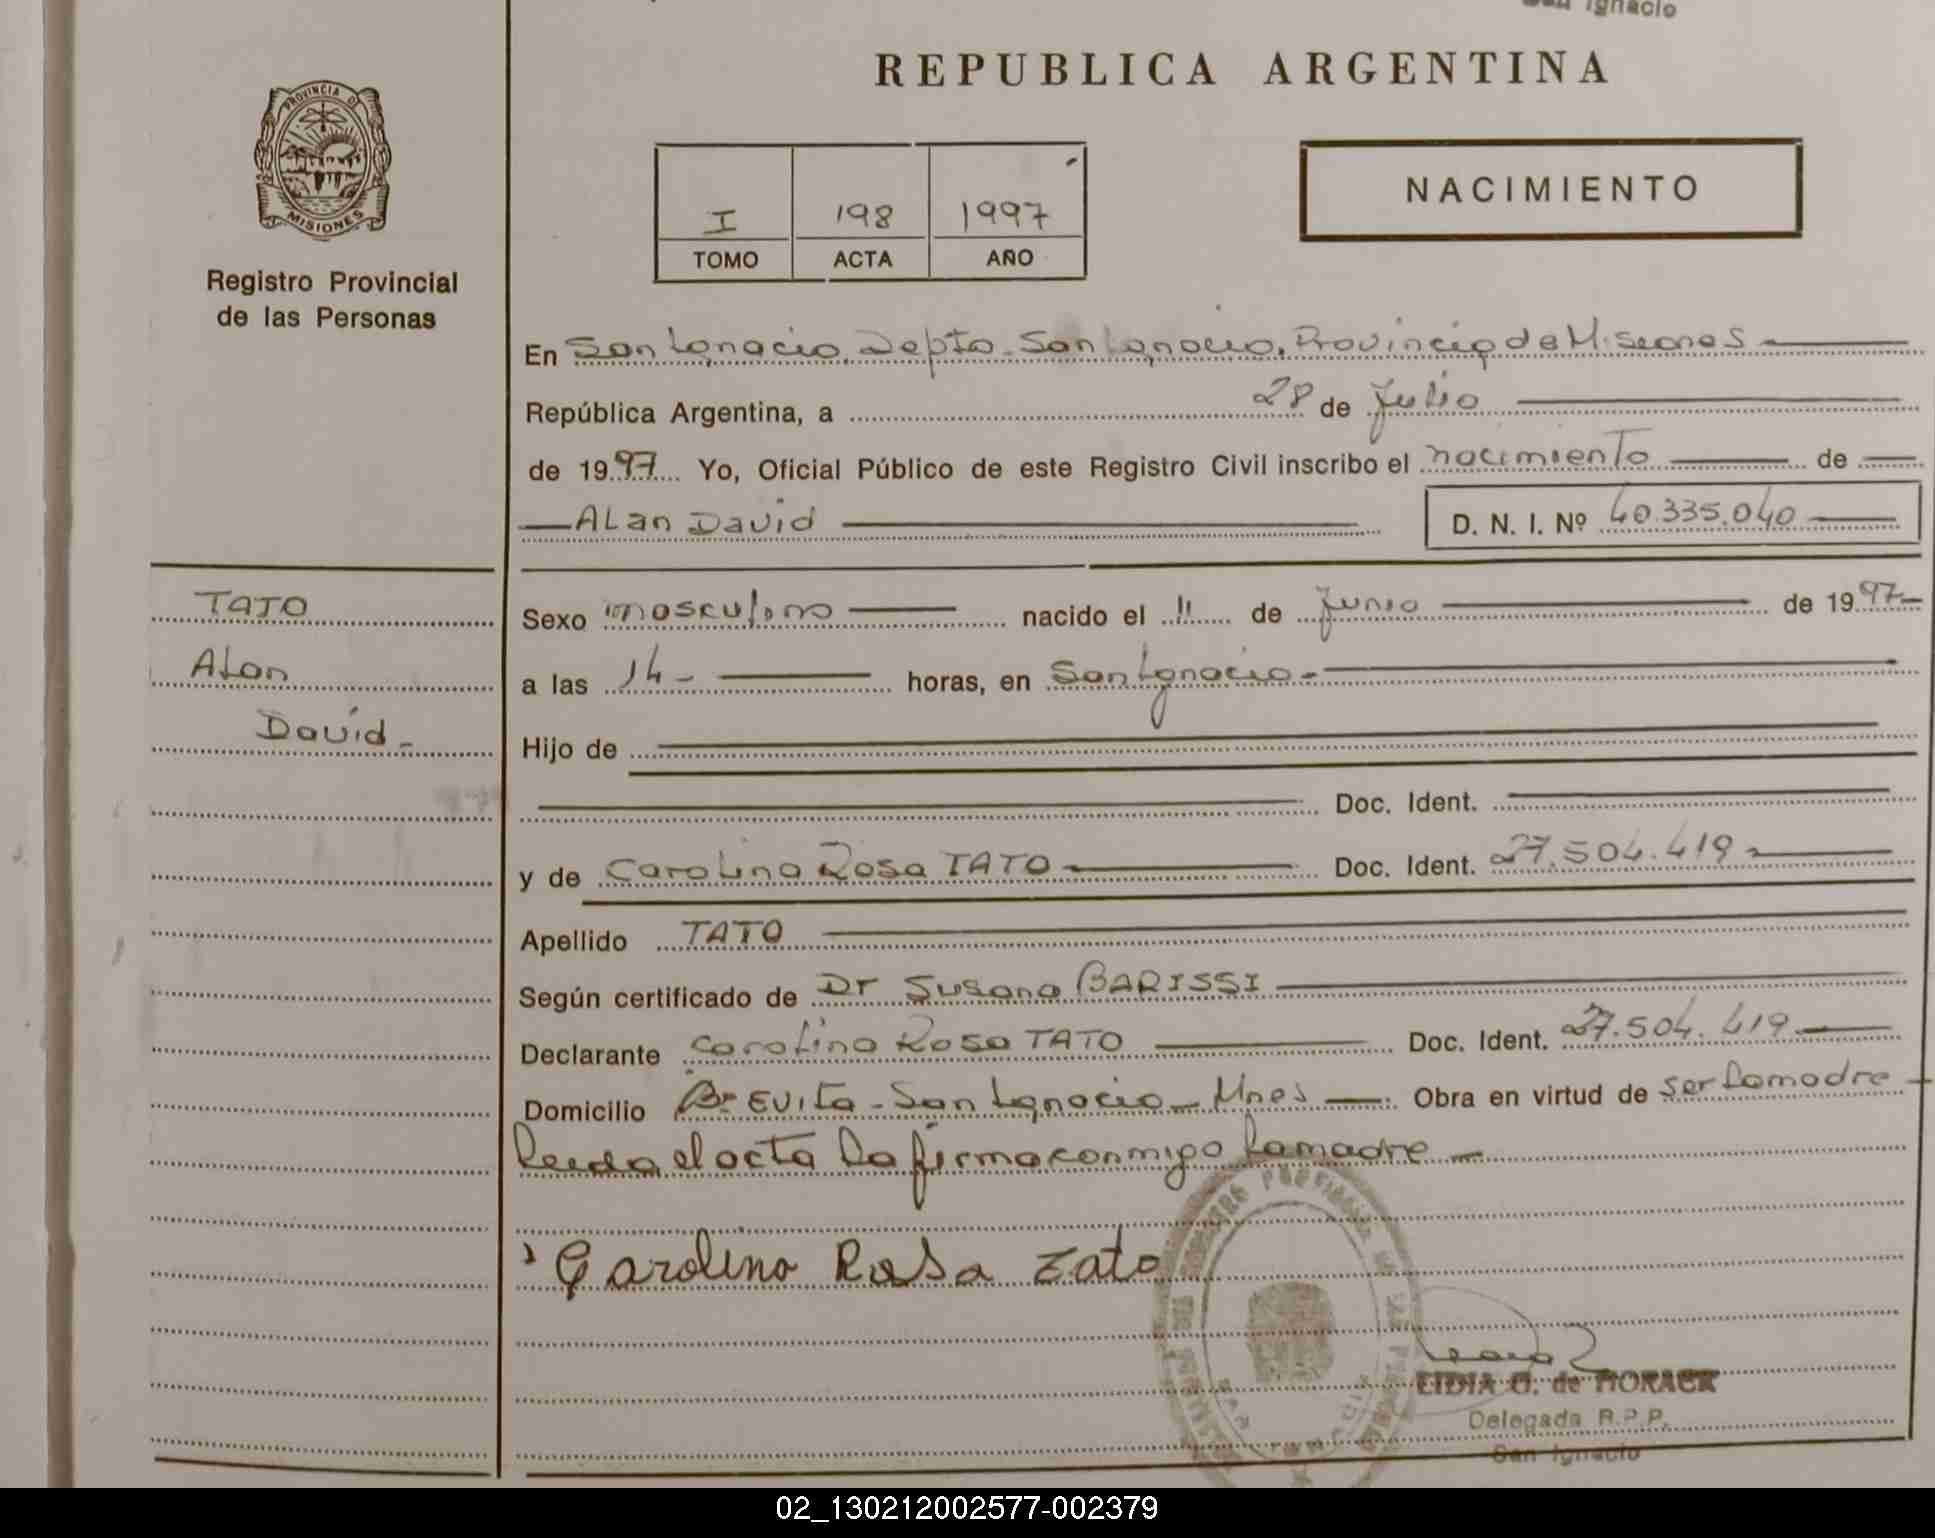 San Ignacio
REPUBLICA ARGENTINA
PROVINCIA DE
MISIONES
Registro Provincial
de las Personas
I 198 1997
TOMO ACTA AÑO
NACIMIENTO
En San Ignacio, Depto. San Ignacio, Provincia de Misiones
República Argentina, a 28 de Julio
de 1997 Yo, Oficial Público de este Registro Civil inscribo el nacimiento de
Alan David D. N. I. Nº 40.335.040
TATO
Alan
David
Sexo masculino nacido el 11 de Junio de 1997
a las 14 horas, en San Ignacio
Hijo de
Doc. Ident.
y de Carolina Rosa TATO Doc. Ident. 27.504.419
Apellido TATO
Según certificado de Dr Susana BARISSI
Declarante Carolina Rosa TATO Doc. Ident. 27.504.419
Domicilio Bº Evita - San Ignacio - Mnes Obra en virtud de ser la madre
leida el acta la firma conmigo la madre
Carolina Rosa Tato
LIDIA G. de HORACK
Delegada R.P.P.
San Ignacio
02_130212002577-002379